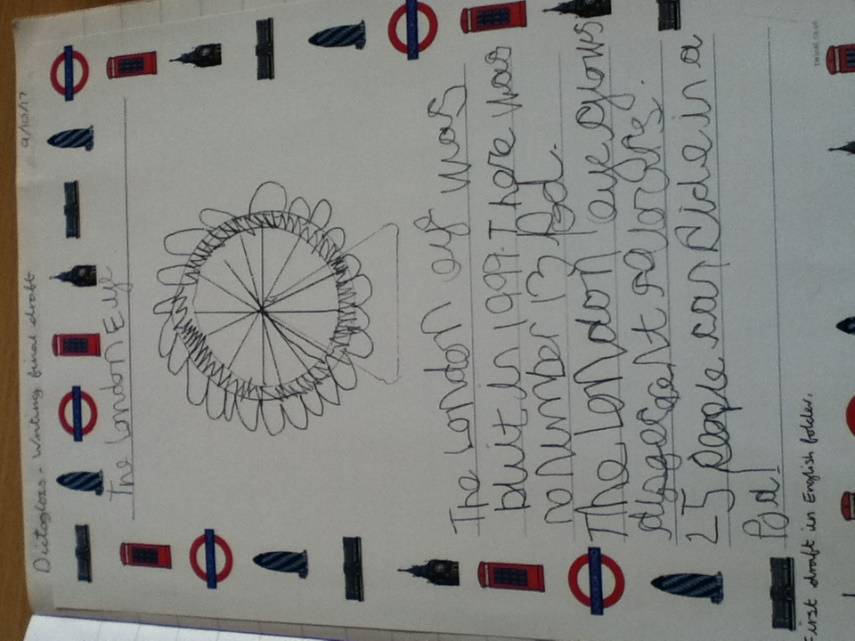 Dictogloss - Writing final draft
9/10/17
The London Eye
The London eye was
built in 1999. There was
no number 13 Pod.
The London eye glows
diffgerent colours.
25 people can Ride in a
Pod!
First draft in English folder.